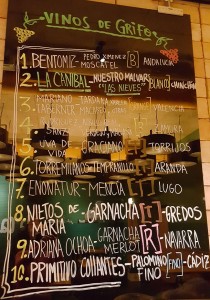 VINOS DE GRIFO
1. BENTOMIZ - PEDRO XIMENEZ [B] ANDALUCIA
MOSCATEL
2. LA CANIBAL - NUESTRO MALVAR
"LAS NIEVES" [BLANCO]
3. MARIANO TARDANA
TABERNER VALENCIA
4.
5. UVA DE GRACIANO TORRIJOS
VIDA
6. TORREMILANOS TEMPRANILLO - ARANDA
7. ENONATUR - MENCIA LUGO
8. NIETOS DE - GARNACHA [T] - GREDOS
MARIA
9. ADRIANA OCHOA - GARNACHA [R] - NAVARRA
MERLOT
10. PRIMITIVO COLLANTES - PALOMINO [FINO] - CÁDIZ
FINO